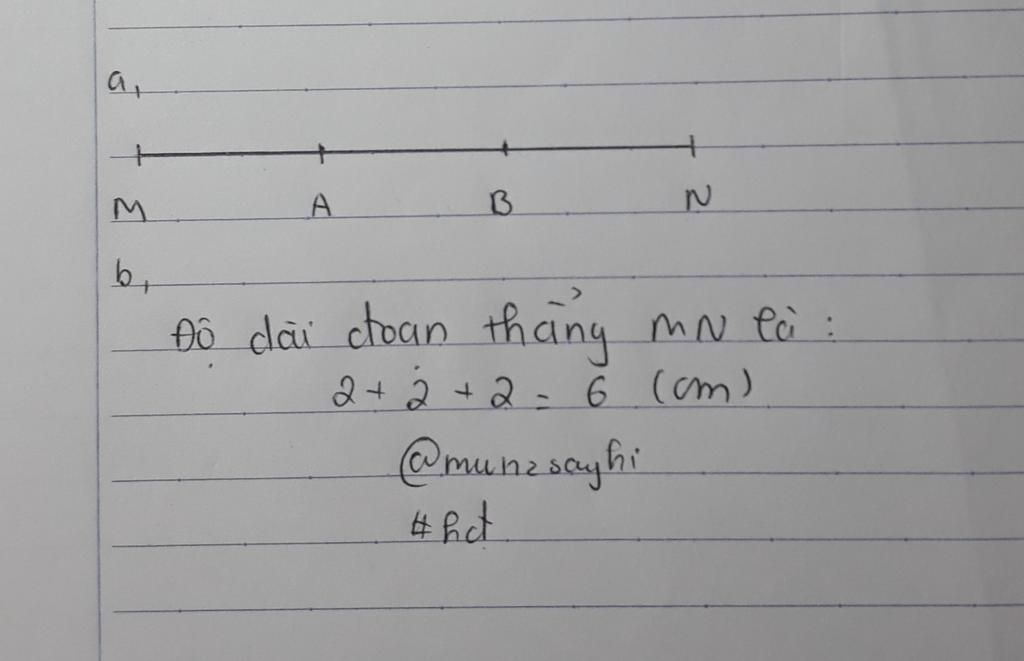 a,
M A B N
b,
Độ dài đoạn thẳng MN là :
2 + 2 + 2 = 6 (cm)
@munzsayhi
#hct